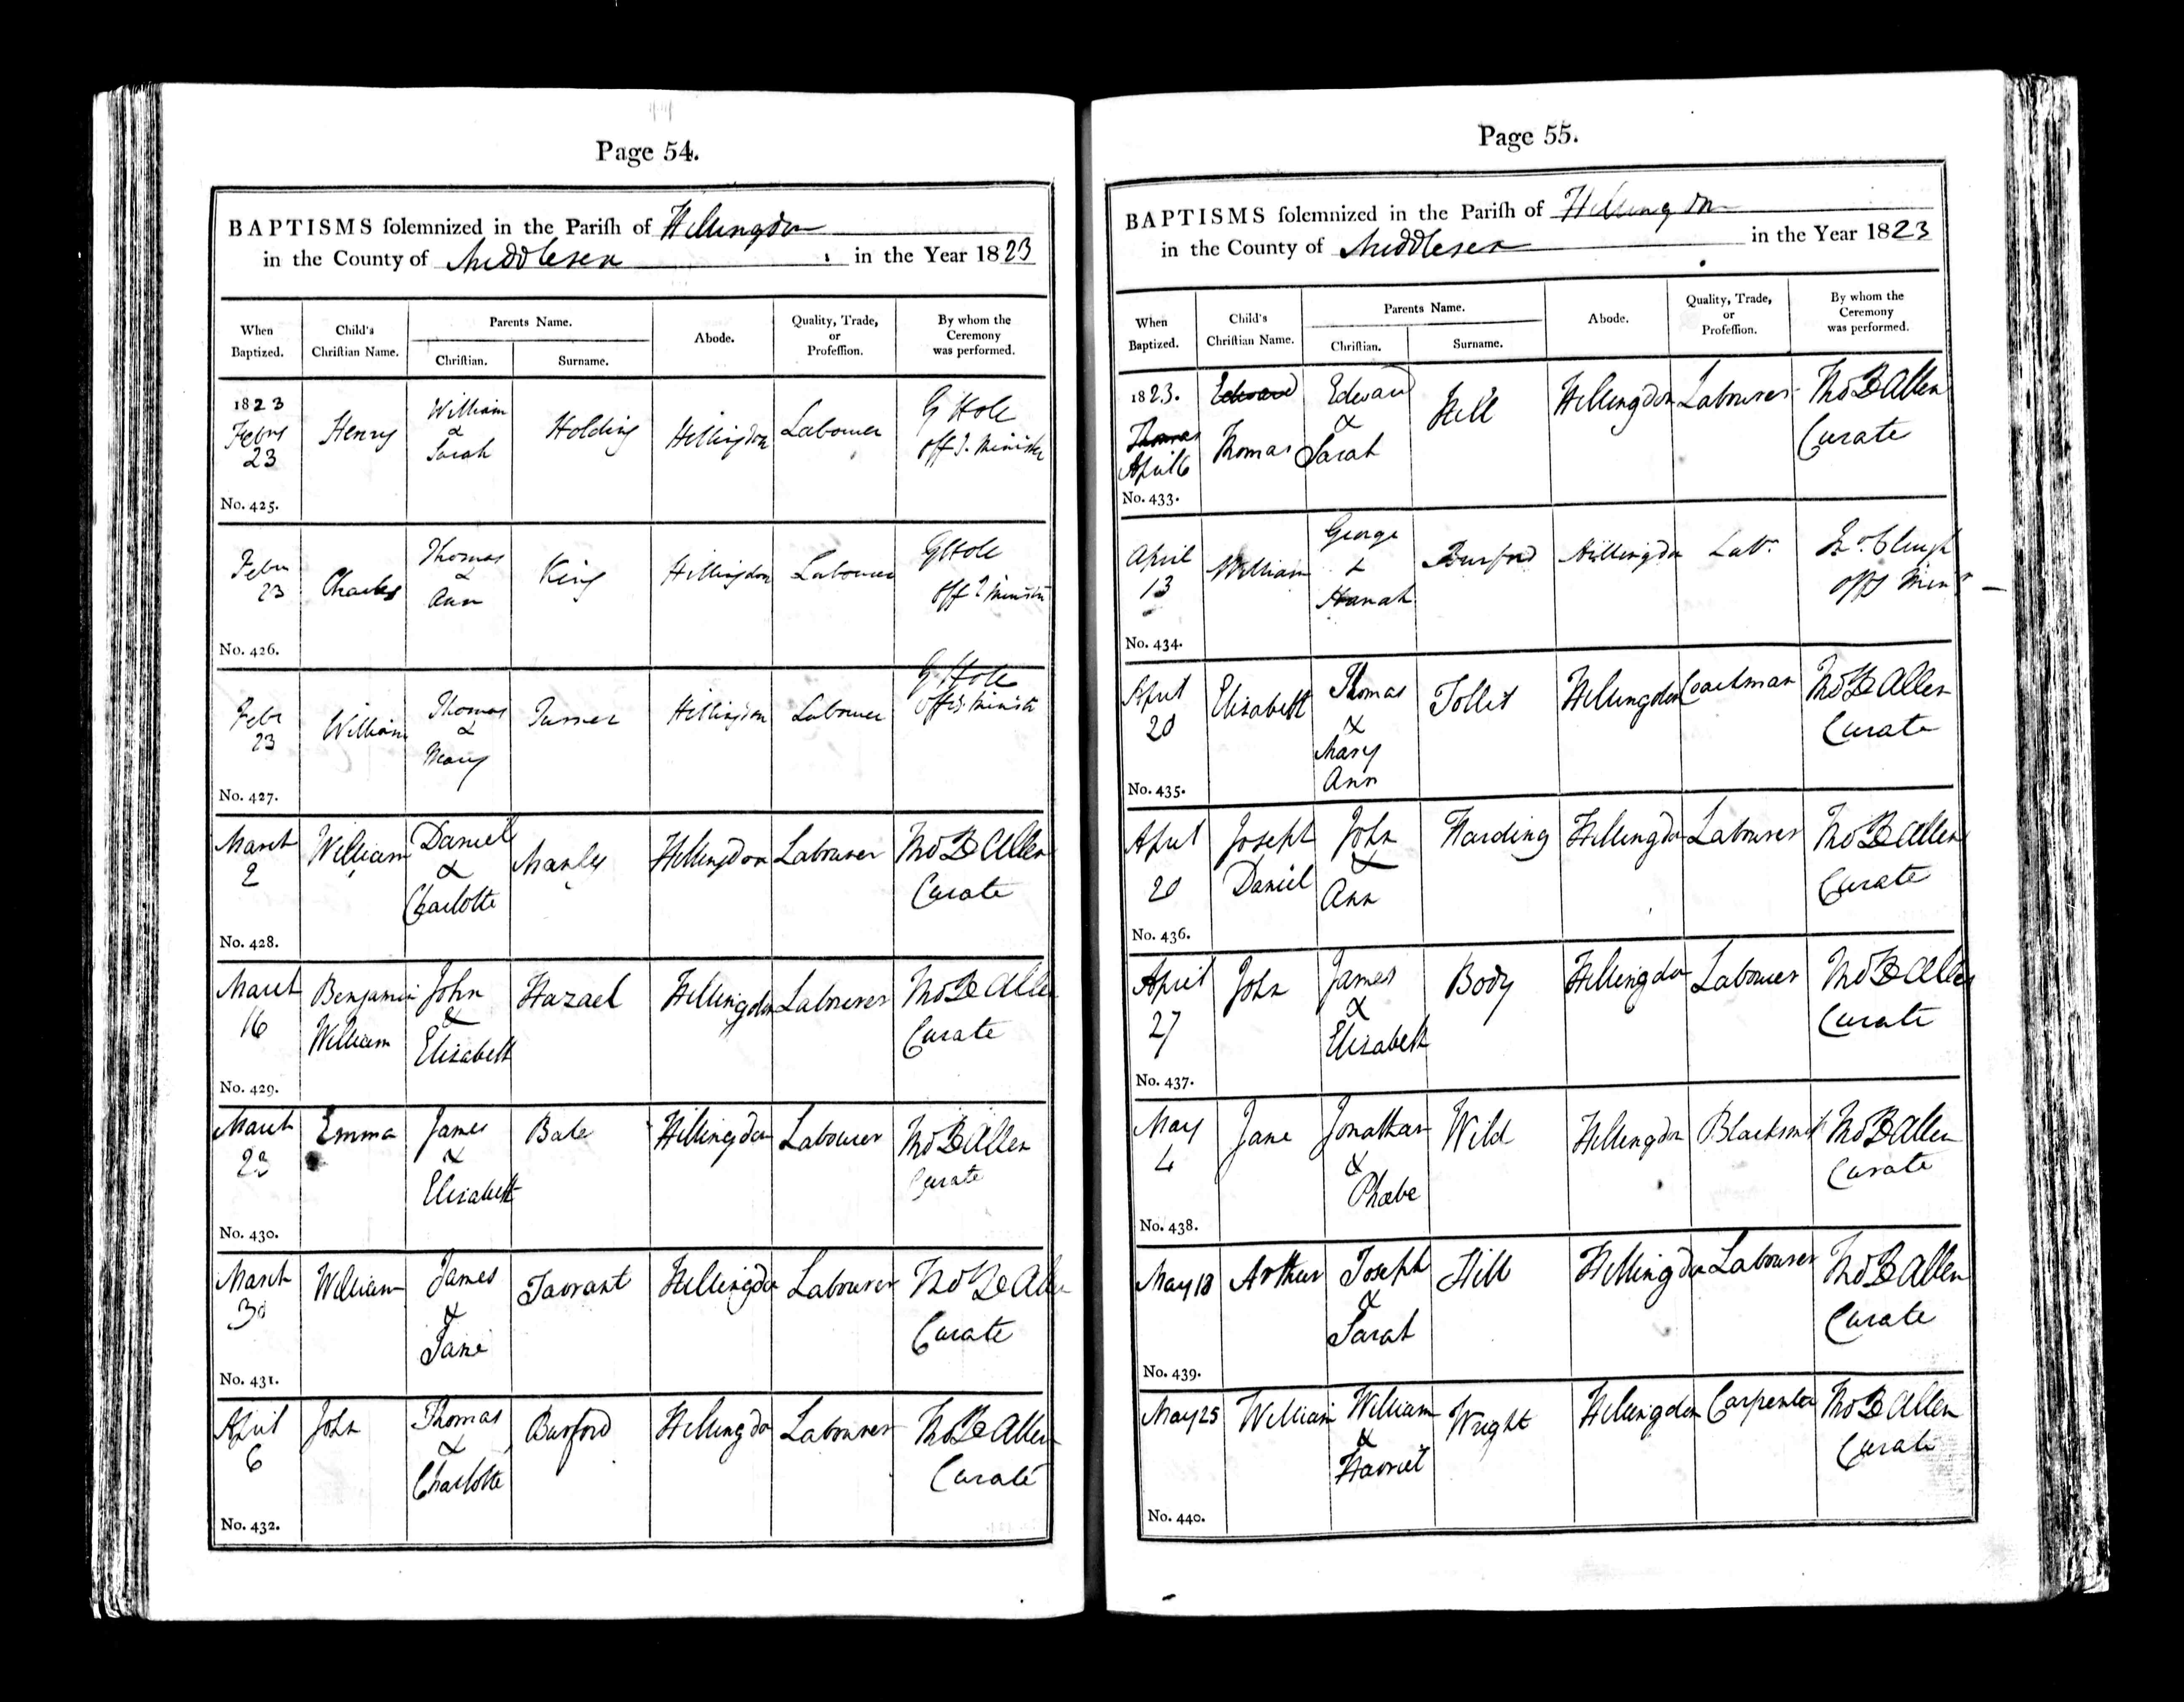 Page 54.
BAPTISMS solemnized in the Parish of Hillingdon
in the County of Middlesex in the Year 1823
When Baptized. Child's Christian Name. Parents Name. Christian. Surname. Abode. Quality, Trade, or Profession. By whom the Ceremony was performed.
1823 Febry 23 Henry William & Sarah Holding Hillingdon Labourer G Hole Offg. Minister
No. 425.
Febry 23 Charles Thomas & Ann King Hillingdon Labourer G Hole Offg Minister
No. 426.
Febr 23 William Thomas & Mary Turner Hillingdon Labourer G Hole Offg. Minister
No. 427.
March 2 William Daniel & Charlotte Manley Hillingdon Labourer Thos De Allen Curate
No. 428.
March 16 Benjamin William John & Elizabeth Hazael Hillingdon Labourer Thos De Allen Curate
No. 429.
March 23 Emma James & Elizabeth Bale Hillingdon Labourer Thos De Allen Curate
No. 430.
March 30 William James & Jane Tarrant Hillingdon Labourer Thos De Allen Curate
No. 431.
April 6 John Thomas & Charlotte Burford Hillingdon Labourer Thos De Allen Curate
No. 432.
Page 55.
BAPTISMS solemnized in the Parish of Hillingdon
in the County of Middlesex in the Year 1823
When Baptized. Child's Christian Name. Parents Name. Christian. Surname. Abode. Quality, Trade, or Profession. By whom the Ceremony was performed.
1823. Thomas April 6 Edward Thomas Edward & Sarah Hill Hillingdon Labourer Thos De Allen Curate
No. 433.
April 13 William George & Hanah Burford Hillingdon Labr. Jno. Cleugh Offg Minr
No. 434.
April 20 Elizabeth Thomas & Mary Ann Tollit Hillingdon Coachman Thos De Allen Curate
No. 435.
April 20 Joseph Daniel John & Ann Harding Hillingdon Labourer Thos De Allen Curate
No. 436.
April 27 John James & Elizabeth Body Hillingdon Labourer Thos De Allen Curate
No. 437.
May 4 Jane Jonathan & Phœbe Wild Hillingdon Blacksmith Thos De Allen Curate
No. 438.
May 18 Arthur Joseph & Sarah Hill Hillingdon Labourer Thos De Allen Curate
No. 439.
May 25 William William & Harriet Wright Hillingdon Carpenter Thos De Allen Curate
No. 440.